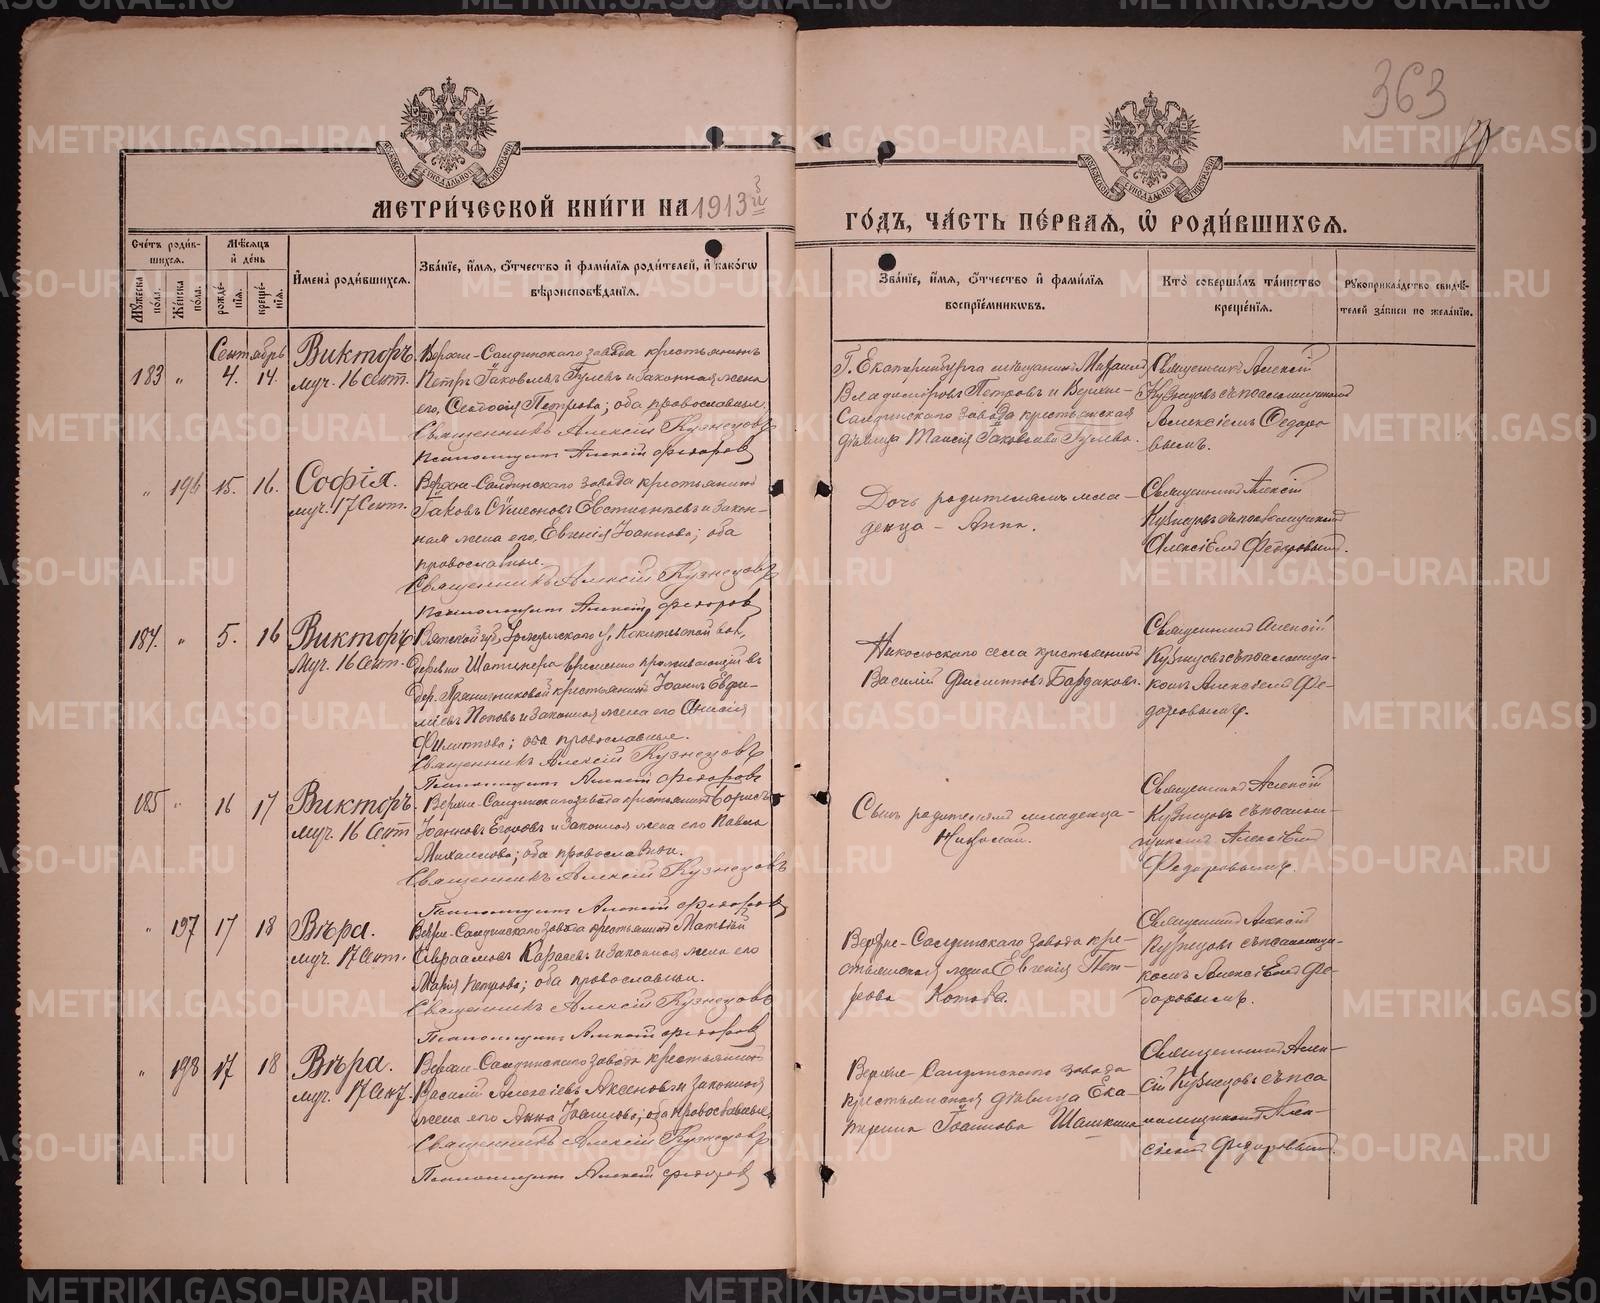 363
МЕТРИ́ЧЕСКОЙ КНИ́ГИ НА 1913й
ГО́ДЪ, ЧА́СТЬ ПЕ́РВАЯ, Ѽ РОДИ́ВШИХСЯ.
Сче́тъ роди́в-
шихся.
Му́жеска по́ла.
Же́нска по́ла.
Мѣ́сяцъ и де́нь
рожде́нїя.
креще́нїя.
И҆мена̀ роди́вшихся.
Зва́нїе, и҆́мя, ѻ҆́тчество и҆ фами́лїя роди́телей, и҆ како́гѡ
вѣроисповѣ́данїя.
Зва́нїе, и҆́мя, ѻ҆́тчество и҆ фами́лїя
воспрїе́мникѡвъ.
Кто̀ соверша́лъ та́инство
креще́нїя.
Рукоприкла́дство свидѣ́-
телей за́писи по жела́нїю.
Сентябрь
183 " 4. 14.
Викторъ
муч. 16 Сент.
Верхне-Салдинскаго завода крестьянинъ
Петръ Іаковлевъ Гулевъ и законная жена
его, Ѳеодосія Петрова; оба православные.
Священникъ Алексій Кузнецовъ
Псаломщикъ Алексій Ѳедоровъ
Г. Екатеринбурга мѣщанинъ Михаилъ
Владиміровъ Петровъ и Верхне-
Салдинскаго завода крестьянская
дѣвица Таисія Іаковлева Гулева.
Священникъ Алексій
Кузнецовъ съ псаломщикомъ
Алексіемъ Ѳедоро-
вымъ.
" 196 15. 16.
Софія.
муч. 17 Сент.
Верхне-Салдинскаго завода крестьянинъ
Іаковъ Сѵмеоновъ Евстигнѣевъ и закон-
ная жена его, Евгенія Іоаннова; оба
православные.
Священникъ Алексій Кузнецовъ
Псаломщикъ Алексій Ѳедоровъ
Дочь родителямъ мла-
денца - Анна.
Священникъ Алексій
Кузнецовъ съ псаломщикомъ
Алексіемъ Ѳедоровымъ.
184. " 5. 16
Викторъ
муч. 16 Сент.
Вятской губ.,
деревни временно проживающій въ
дер. крестьянинъ Іоаннъ Евфи-
міевъ Поповъ и законная жена его Анисія
Филиппова; оба православные.
Священникъ Алексій Кузнецовъ
Псаломщикъ Алексій Ѳедоровъ
Никольскаго села крестьянинъ
Василій Филипповъ Бардаковъ.
Священникъ Алексій
Кузнецовъ съ псаломщи-
комъ Алексіемъ Ѳе-
доровымъ.
185 " 16 17
Викторъ
муч. 16 Сент
Верхне-Салдинскаго завода крестьянинъ Борисъ
Іоанновъ Егоровъ и законная жена его Павла
Михаилова; оба православные.
Священникъ Алексій Кузнецовъ
Псаломщикъ Алексій Ѳедоровъ
Сынъ родителямъ младенца-
Николай.
Священникъ Алексій
Кузнецовъ съ псалом-
щикомъ Алексіемъ
Ѳедоровымъ.
" 197 17 18
Вѣра.
муч. 17 Сент.
Верхне-Салдинскаго завода крестьянинъ Матвѣй
Авраамовъ Карасевъ и законная жена его
Марія Петрова; оба православные.
Священникъ Алексій Кузнецовъ
Псаломщикъ Алексій Ѳедоровъ
Верхне-Салдинскаго завода кре-
стьянская жена Евгенія Пет-
рова Котова.
Священникъ Алексій
Кузнецовъ съ псаломщи-
комъ Алексіемъ Ѳе-
доровымъ.
" 198 17 18
Вѣра.
муч. 17 Сент.
Верхне-Салдинскаго завода крестьянинъ
Василій Алексіевъ Аксеновъ и законная
жена его Анна оба православные,
Священникъ Алексій Кузнецовъ
Псаломщикъ Алексій Ѳедоровъ
Верхне-Салдинскаго завода
крестьянская дѣвица Ека-
терина Іоаннова Шашкина
Священникъ Алек-
сій Кузнецовъ съ пса
ломщикомъ Алек-
сіемъ Ѳедоровымъ
METRIKI.GASO-URAL.RU